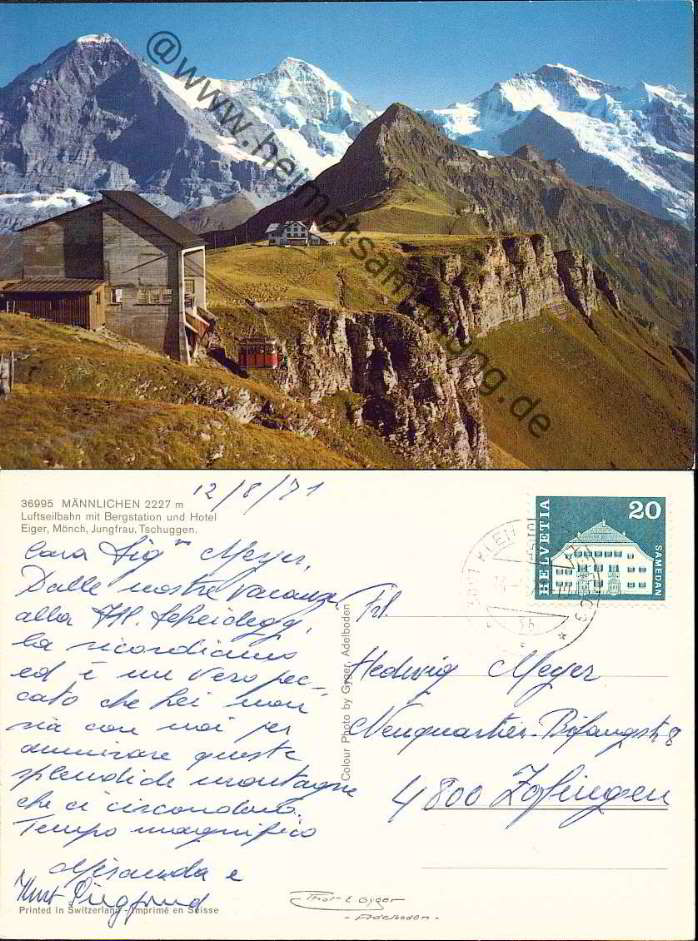 @www.heimatsammlung.de
12/8/71
36995 MÄNNLICHEN 2227 m
Luftseilbahn mit Bergstation und Hotel
Eiger, Mönch, Jungfrau, Tschuggen.
Cara Sig.na Meyer,
Dalle nostre vacanze
alla Kl. Scheidegg,
la ricordiamo
ed è un vero pec-
cato che lei non
sia con noi per
ammirare queste
splendide montagne
che ci circondano.
Tempo magnifico
Miranda e
Kurt Siegfried
Printed in Switzerland - Imprimé en Suisse
Colour Photo by Gyger, Adelboden
HELVETIA
20
SAMEDAN
Frl.
Hedwig Meyer
Neuquartier-Bifangstr. 8
4800 Zofingen
Gyger
- Adelboden -